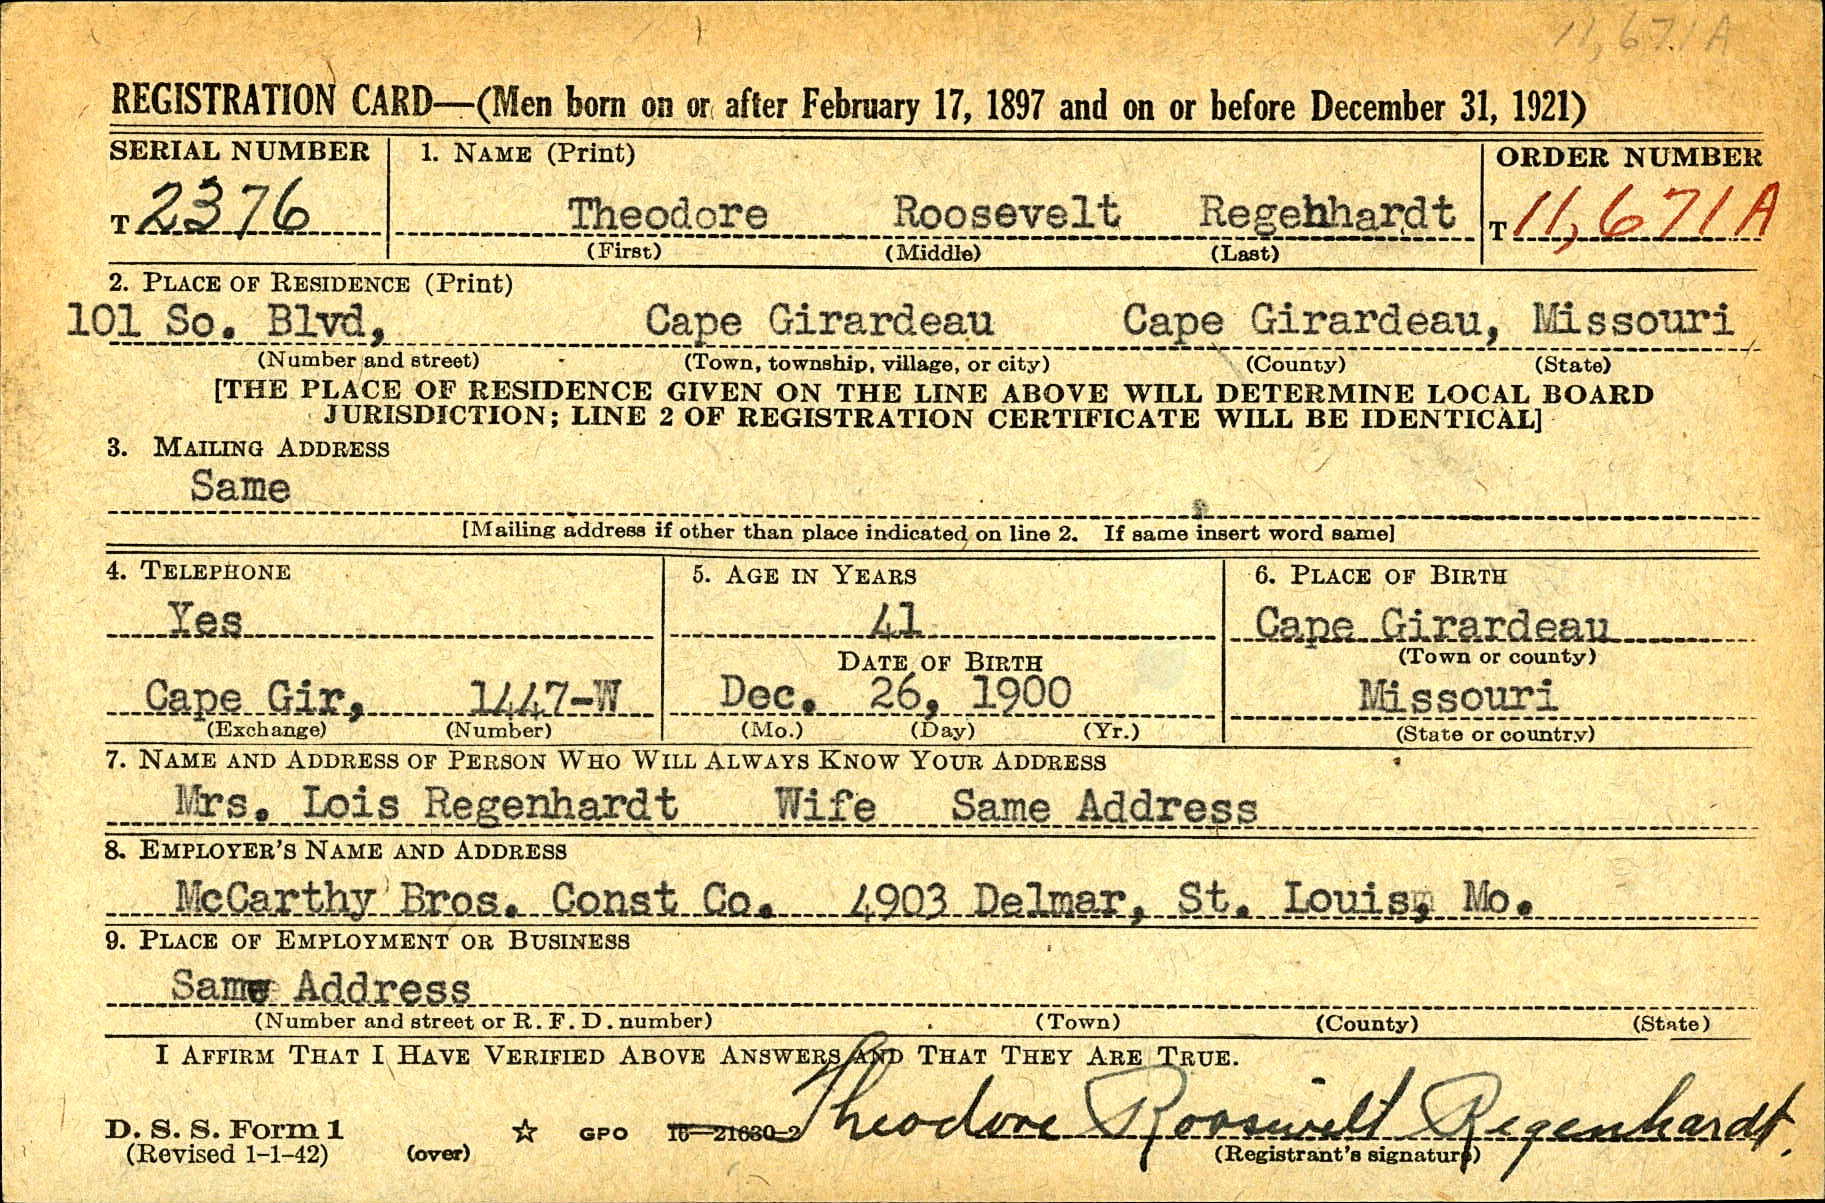 11,671A
REGISTRATION CARD—(Men born on or after February 17, 1897 and on or before December 31, 1921)
SERIAL NUMBER 1. NAME (Print) ORDER NUMBER
T 2376 Theodore Roosevelt Regenhardt T 11,671A
(First) (Middle) (Last)
2. PLACE OF RESIDENCE (Print)
101 So. Blvd, Cape Girardeau Cape Girardeau, Missouri
(Number and street) (Town, township, village, or city) (County) (State)
[THE PLACE OF RESIDENCE GIVEN ON THE LINE ABOVE WILL DETERMINE LOCAL BOARD
JURISDICTION; LINE 2 OF REGISTRATION CERTIFICATE WILL BE IDENTICAL]
3. MAILING ADDRESS
Same
[Mailing address if other than place indicated on line 2. If same insert word same]
4. TELEPHONE 5. AGE IN YEARS 6. PLACE OF BIRTH
Yes 41 Cape Girardeau
DATE OF BIRTH (Town or county)
Cape Gir, 1447-W Dec. 26, 1900 Missouri
(Exchange) (Number) (Mo.) (Day) (Yr.) (State or country)
7. NAME AND ADDRESS OF PERSON WHO WILL ALWAYS KNOW YOUR ADDRESS
Mrs. Lois Regenhardt Wife Same Address
8. EMPLOYER'S NAME AND ADDRESS
McCarthy Bros. Const Co. 4903 Delmar, St. Louis, Mo.
9. PLACE OF EMPLOYMENT OR BUSINESS
Same Address
(Number and street or R. F. D. number) (Town) (County) (State)
I AFFIRM THAT I HAVE VERIFIED ABOVE ANSWERS AND THAT THEY ARE TRUE.
Theodore Roosevelt Regenhardt.
D. S. S. Form 1 ☆ GPO 16—21630-2
(Revised 1-1-42) (over) (Registrant's signature)